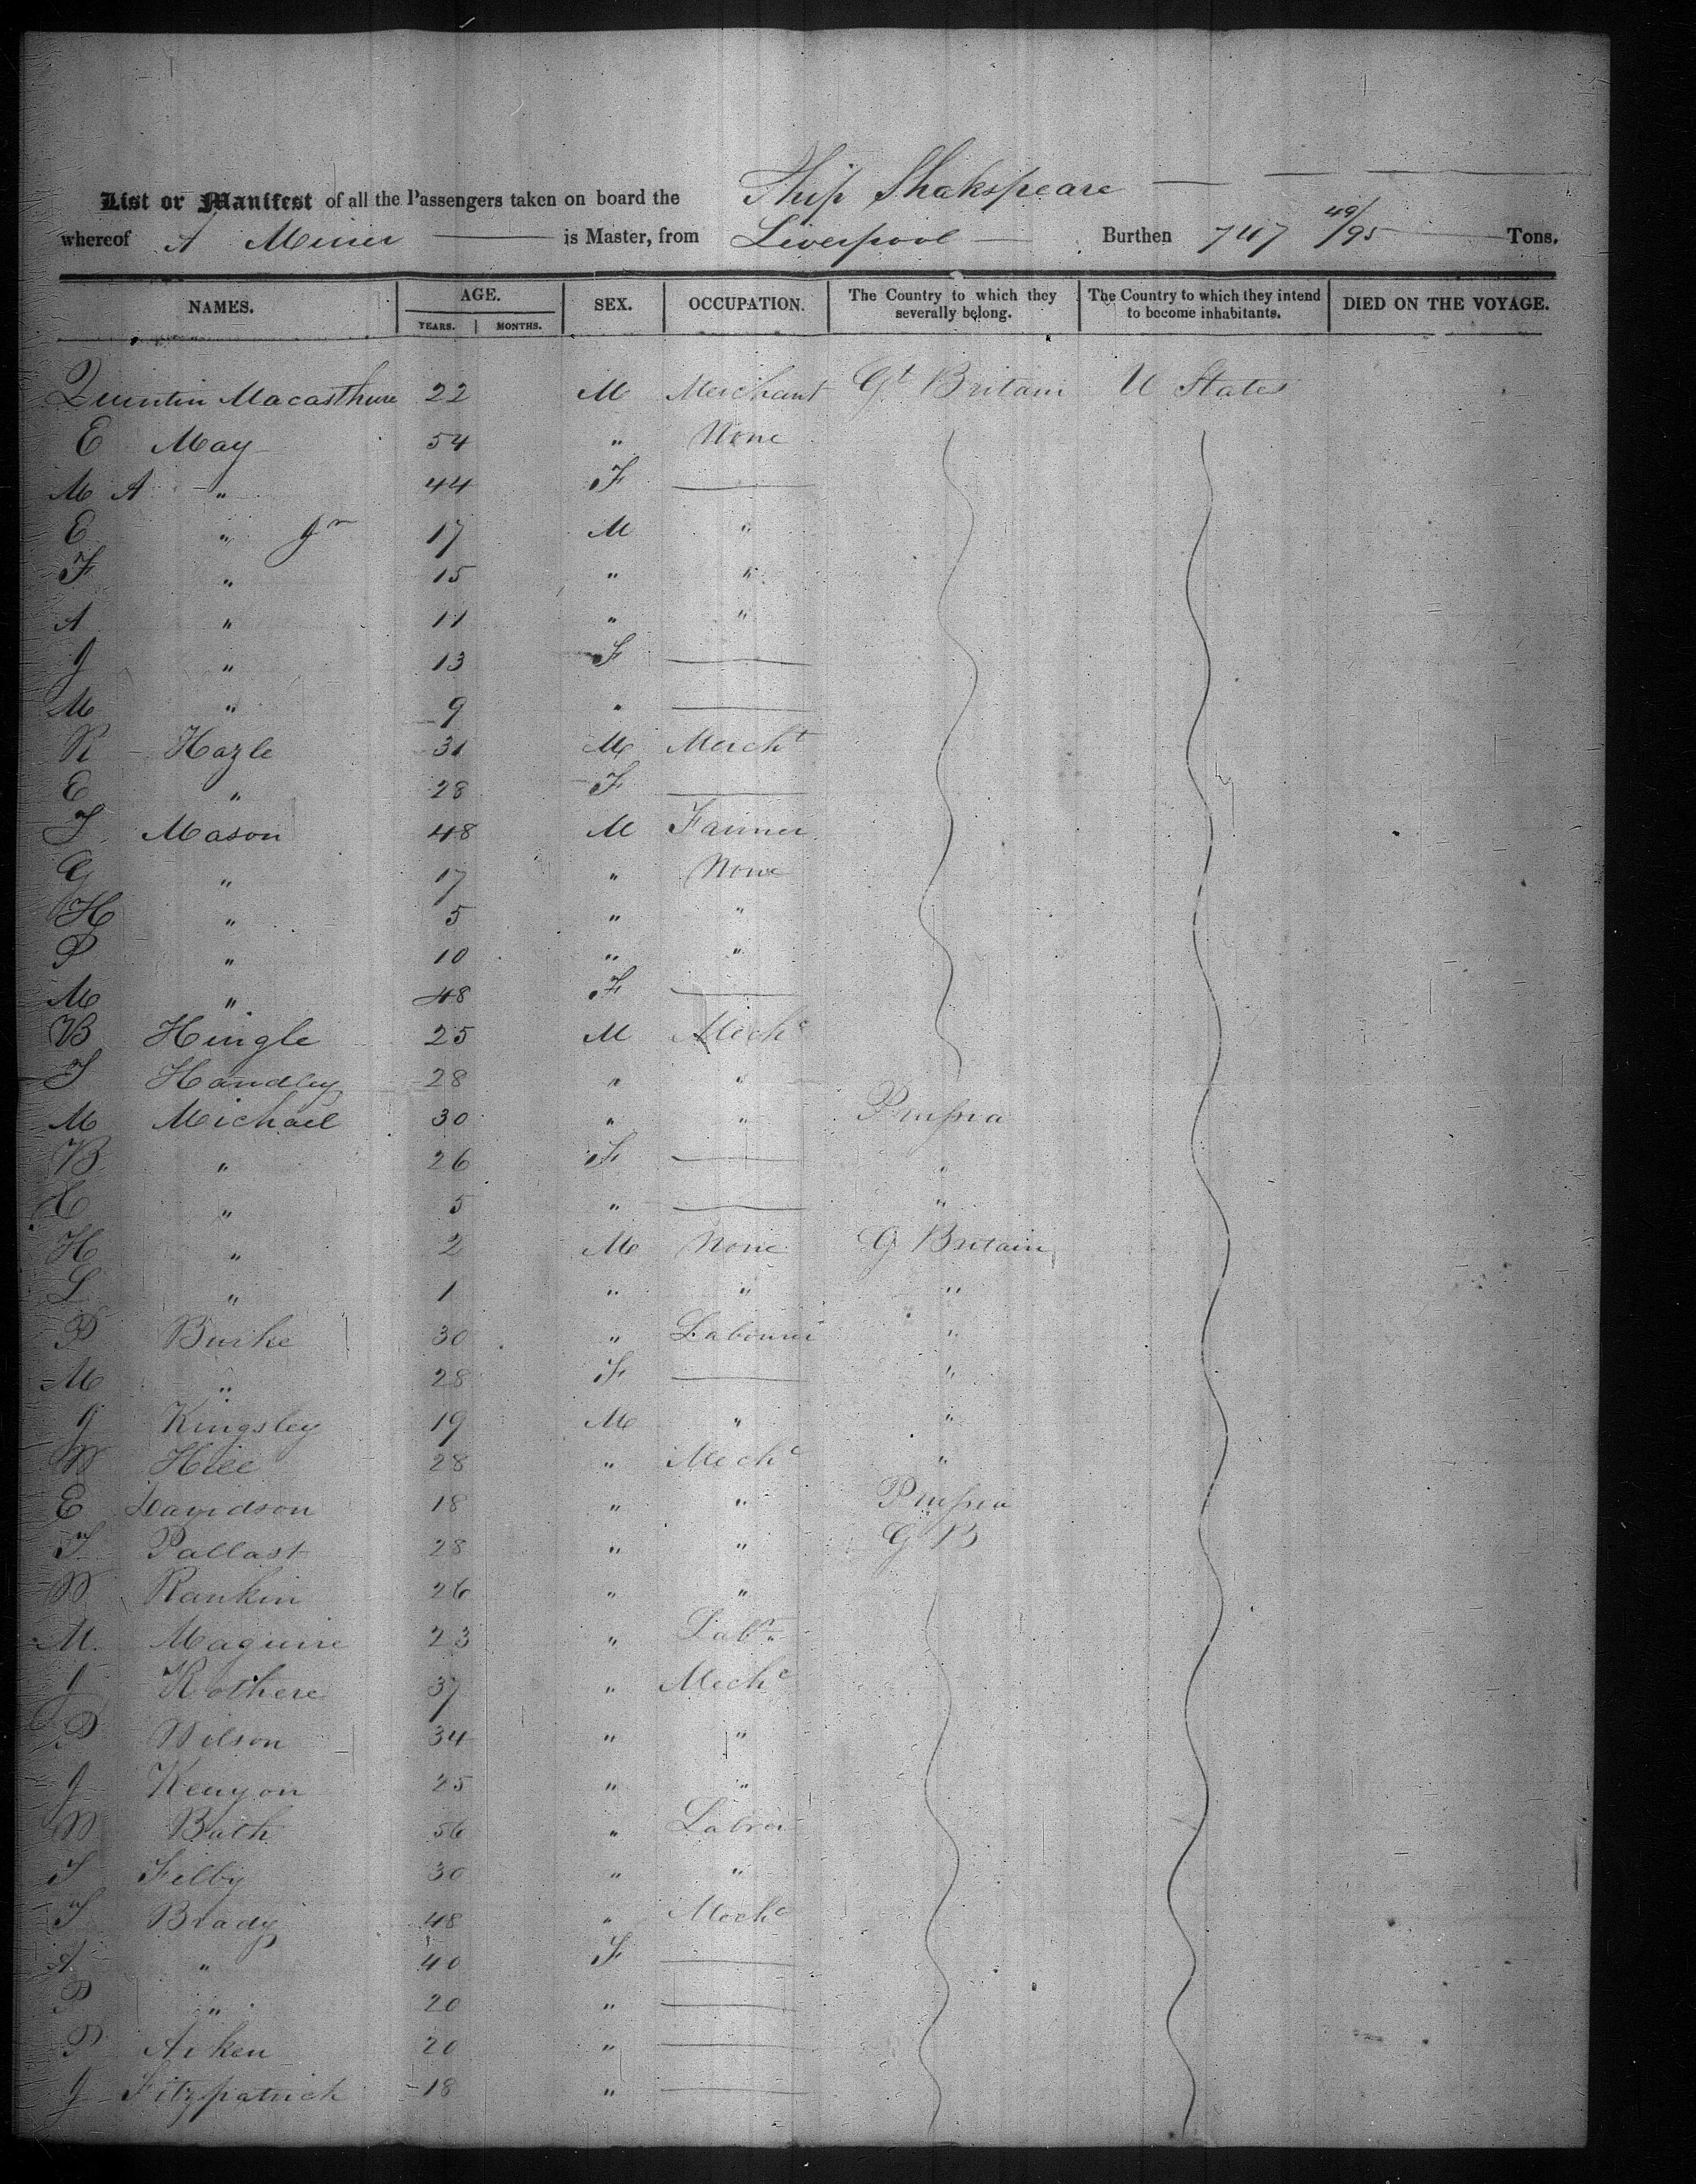 List or Manifest of all the Passengers taken on board the Ship Shakspeare
whereof A Miner is Master, from Liverpool Burthen 747 49/95 Tons.
NAMES. AGE. SEX. OCCUPATION. The Country to which they severally belong. The Country to which they intend to become inhabitants. DIED ON THE VOYAGE.
YEARS. MONTHS.
Quentin Macarthur 22 M Merchant Gt Britain U States
E May 54 " None
M A " 44 F
E " Jr 17 M "
F " 15 " "
A " 11 " "
J " 13 F
M " 9 "
R Hazle 31 M Mercht
E " 28 F
T Mason 48 M Farmer
G " 17 " None
H " 5 " "
P " 10 " "
M " 48 F
B Hingle 25 M Mechc
T Handley 28 " "
M Michael 30 " " Prussia
B " 26 F "
" 5 " "
H " 2 M None G Britain
L " 1 " " "
P Burke 30 " Labourer "
M " 28 F "
J Kingsley 19 M " "
W Hill 28 " Mechc "
E Davidson 18 " " Prussia
T Pallast 28 " " G B
W Rankin 26 " "
M Maguire 23 " Labr
J Rothere 37 " Mechc
P Wilson 34 " "
J Kenyon 25 " "
W Bath 56 " Labrer
T Filby 30 " "
T Brady 48 " Mechc
A " 40 F
P " 20 "
P Aiken 20 "
J Fitzpatrick 18 "